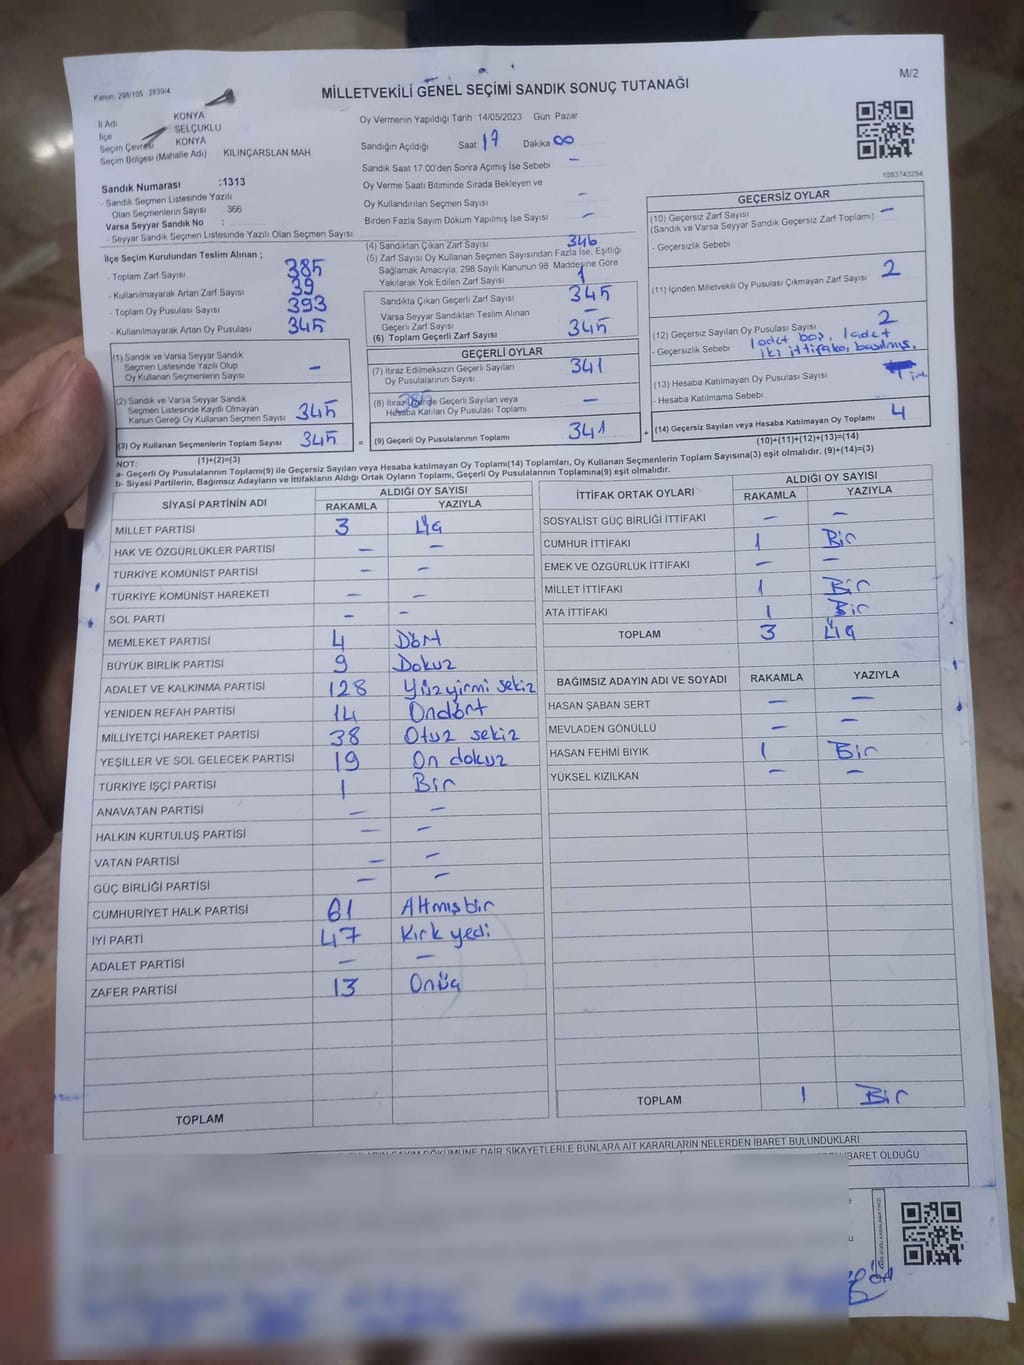 Kanun: 298/105 2839/4
M/2
MİLLETVEKİLİ GENEL SEÇİMİ SANDIK SONUÇ TUTANAĞI
İl Adı KONYA
İlçe SELÇUKLU
Seçim Çevresi KONYA
Seçim Bölgesi (Mahalle Adı) KILINÇARSLAN MAH
Sandık Numarası :1313
- Sandık Seçmen Listesinde Yazılı
Olan Seçmenlerin Sayısı 366
Varsa Seyyar Sandık No :
- Seyyar Sandık Seçmen Listesinde Yazılı Olan Seçmen Sayısı
Oy Vermenin Yapıldığı Tarih 14/05/2023 Gün Pazar
Sandığın Açıldığı Saat 17 Dakika 00
Sandık Saat 17:00'den Sonra Açımış İse Sebebi –
Oy Verme Saati Bitiminde Sırada Bekleyen ve
Oy Kullandırılan Seçmen Sayısı –
Birden Fazla Sayım Döküm Yapılmış İse Sayısı –
1083743254
İlçe Seçim Kurulundan Teslim Alınan ;
- Toplam Zarf Sayısı 385
- Kullanılmayarak Artan Zarf Sayısı 39
- Toplam Oy Pusulası Sayısı 393
- Kullanılmayarak Artan Oy Pusulası 345
(1) Sandık ve Varsa Seyyar Sandık
Seçmen Listesinde Yazılı Olup
Oy Kullanan Seçmenlerin Sayısı –
(2) Sandık ve Varsa Seyyar Sandık
Seçmen Listesinde Kayıtlı Olmayan
Kanun Gereği Oy Kullanan Seçmen Sayısı 345
(3) Oy Kullanan Seçmenlerin Toplam Sayısı 345
(1)+(2)=(3)
(4) Sandıktan Çıkan Zarf Sayısı 346
(5) Zarf Sayısı Oy Kullanan Seçmen Sayısından Fazla İse, Eşitliği
Sağlamak Amacıyla, 298 Sayılı Kanunun 98 Maddesine Göre
Yakılarak Yok Edilen Zarf Sayısı 1
Sandıkla Çıkan Geçerli Zarf Sayısı 345
Varsa Seyyar Sandıktan Teslim Alınan
Geçerli Zarf Sayısı –
(6) Toplam Geçerli Zarf Sayısı 345
GEÇERLİ OYLAR
(7) İtiraz Edilmeksizin Geçerli Sayılan
Oy Pusulalarının Sayısı 341
(8) İtiraz Üzerine Geçerli Sayılan veya
Hesaba Katılan Oy Pusulası Toplamı –
= (9) Geçerli Oy Pusulalarının Toplamı 341
GEÇERSİZ OYLAR
(10) Geçersiz Zarf Sayısı –
(Sandık ve Varsa Seyyar Sandık Geçersiz Zarf Toplamı)
- Geçersizlik Sebebi
(11) İçinden Milletvekili Oy Pusulası Çıkmayan Zarf Sayısı 2
(12) Geçersiz Sayılan Oy Pusulası Sayısı 2
- Geçersizlik Sebebi 1 adet boş, 1 adet
iki ittifaka, basılmış.
(13) Hesaba Katılmayan Oy Pusulası Sayısı
- Hesaba Katılmama Sebebi
+ (14) Geçersiz Sayılan veya Hesaba Katılmayan Oy Toplamı 4
(10)+(11)+(12)+(13)=(14)
NOT:
a- Geçerli Oy Pusulalarının Toplamı(9) ile Geçersiz Sayılan veya Hesaba katılmayan Oy Toplamı(14) Toplamları, Oy Kullanan Seçmenlerin Toplam Sayısına(3) eşit olmalıdır. (9)+(14)=(3)
b- Siyasi Partilerin, Bağımsız Adayların ve İttifakların Aldığı Ortak Oyların Toplamı, Geçerli Oy Pusulalarının Toplamına(9) eşit olmalıdır.
SİYASİ PARTİNİN ADI ALDIĞI OY SAYISI
RAKAMLA YAZIYLA
MİLLET PARTİSİ 3 Üç
HAK VE ÖZGÜRLÜKLER PARTİSİ – –
TÜRKİYE KOMÜNİST PARTİSİ – –
TÜRKİYE KOMÜNİST HAREKETİ – –
SOL PARTİ – –
MEMLEKET PARTİSİ 4 Dört
BÜYÜK BİRLİK PARTİSİ 9 Dokuz
ADALET VE KALKINMA PARTİSİ 128 Yüzyirmi sekiz
YENİDEN REFAH PARTİSİ 14 Ondört
MİLLİYETÇİ HAREKET PARTİSİ 38 Otuz sekiz
YEŞİLLER VE SOL GELECEK PARTİSİ 19 On dokuz
TÜRKİYE İŞÇİ PARTİSİ 1 Bir
ANAVATAN PARTİSİ – –
HALKIN KURTULUŞ PARTİSİ – –
VATAN PARTİSİ – –
GÜÇ BİRLİĞİ PARTİSİ – –
CUMHURİYET HALK PARTİSİ 61 Altmışbir
İYİ PARTİ 47 Kırk yedi
ADALET PARTİSİ – –
ZAFER PARTİSİ 13 Onüç
TOPLAM
İTTİFAK ORTAK OYLARI ALDIĞI OY SAYISI
RAKAMLA YAZIYLA
SOSYALİST GÜÇ BİRLİĞİ İTTİFAKI – –
CUMHUR İTTİFAKI 1 Bir
EMEK VE ÖZGÜRLÜK İTTİFAKI – –
MİLLET İTTİFAKI 1 Bir
ATA İTTİFAKI 1 Bir
TOPLAM 3 Üç
BAĞIMSIZ ADAYIN ADI VE SOYADI RAKAMLA YAZIYLA
HASAN ŞABAN SERT – –
MEVLADEN GÖNÜLLÜ – –
HASAN FEHMİ BIYIK 1 Bir
YÜKSEL KIZILKAN – –
TOPLAM 1 Bir
DÖKÜMÜNE DAİR ŞİKAYETLERLE BUNLARA AİT KARARLARIN NELERDEN İBARET BULUNDUKLARI
İBARET OLDUĞU